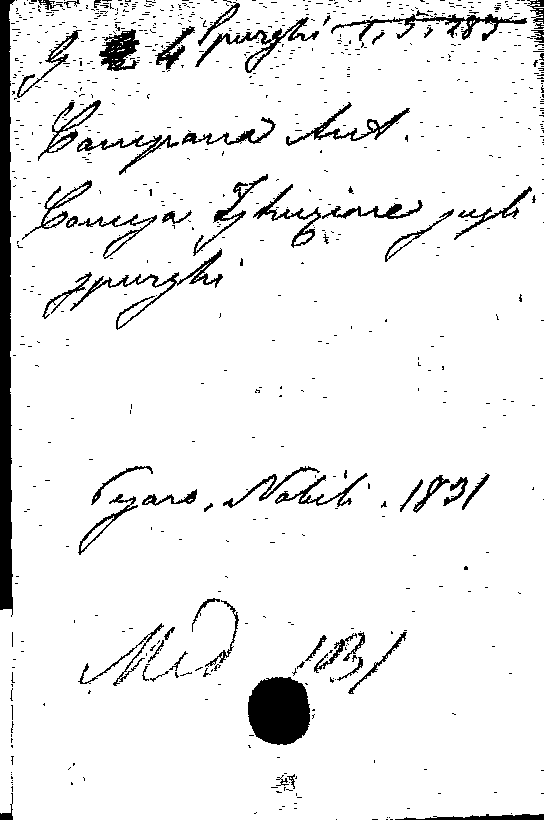 G 4 Spurghi 1, 5, 283
Campana Ant.
Concisa Istruzione sugli
spurghi
Pesaro, Nobili. 1831
Med 1831